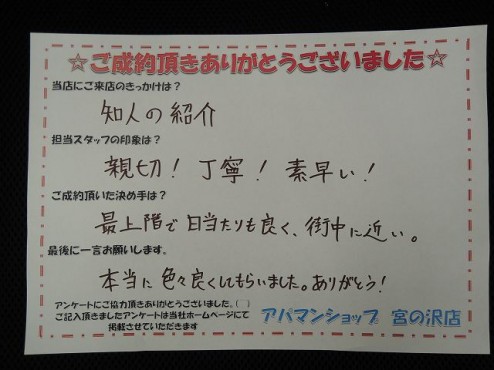 ☆ご成約頂きありがとうございました☆
当店にご来店のきっかけは？
知人の紹介
担当スタッフの印象は？
親切！丁寧！素早い！
ご成約頂いた決め手は？
最上階で日当たりも良く、街中に近い。
最後に一言お願いします。
本当に色々良くしてもらいました。ありがとう！
アンケートにご協力頂きありがとうございました。(＿)
ご記入頂きましたアンケートは当社ホームページにて
掲載させていただきます
アパマンショップ 宮の沢店